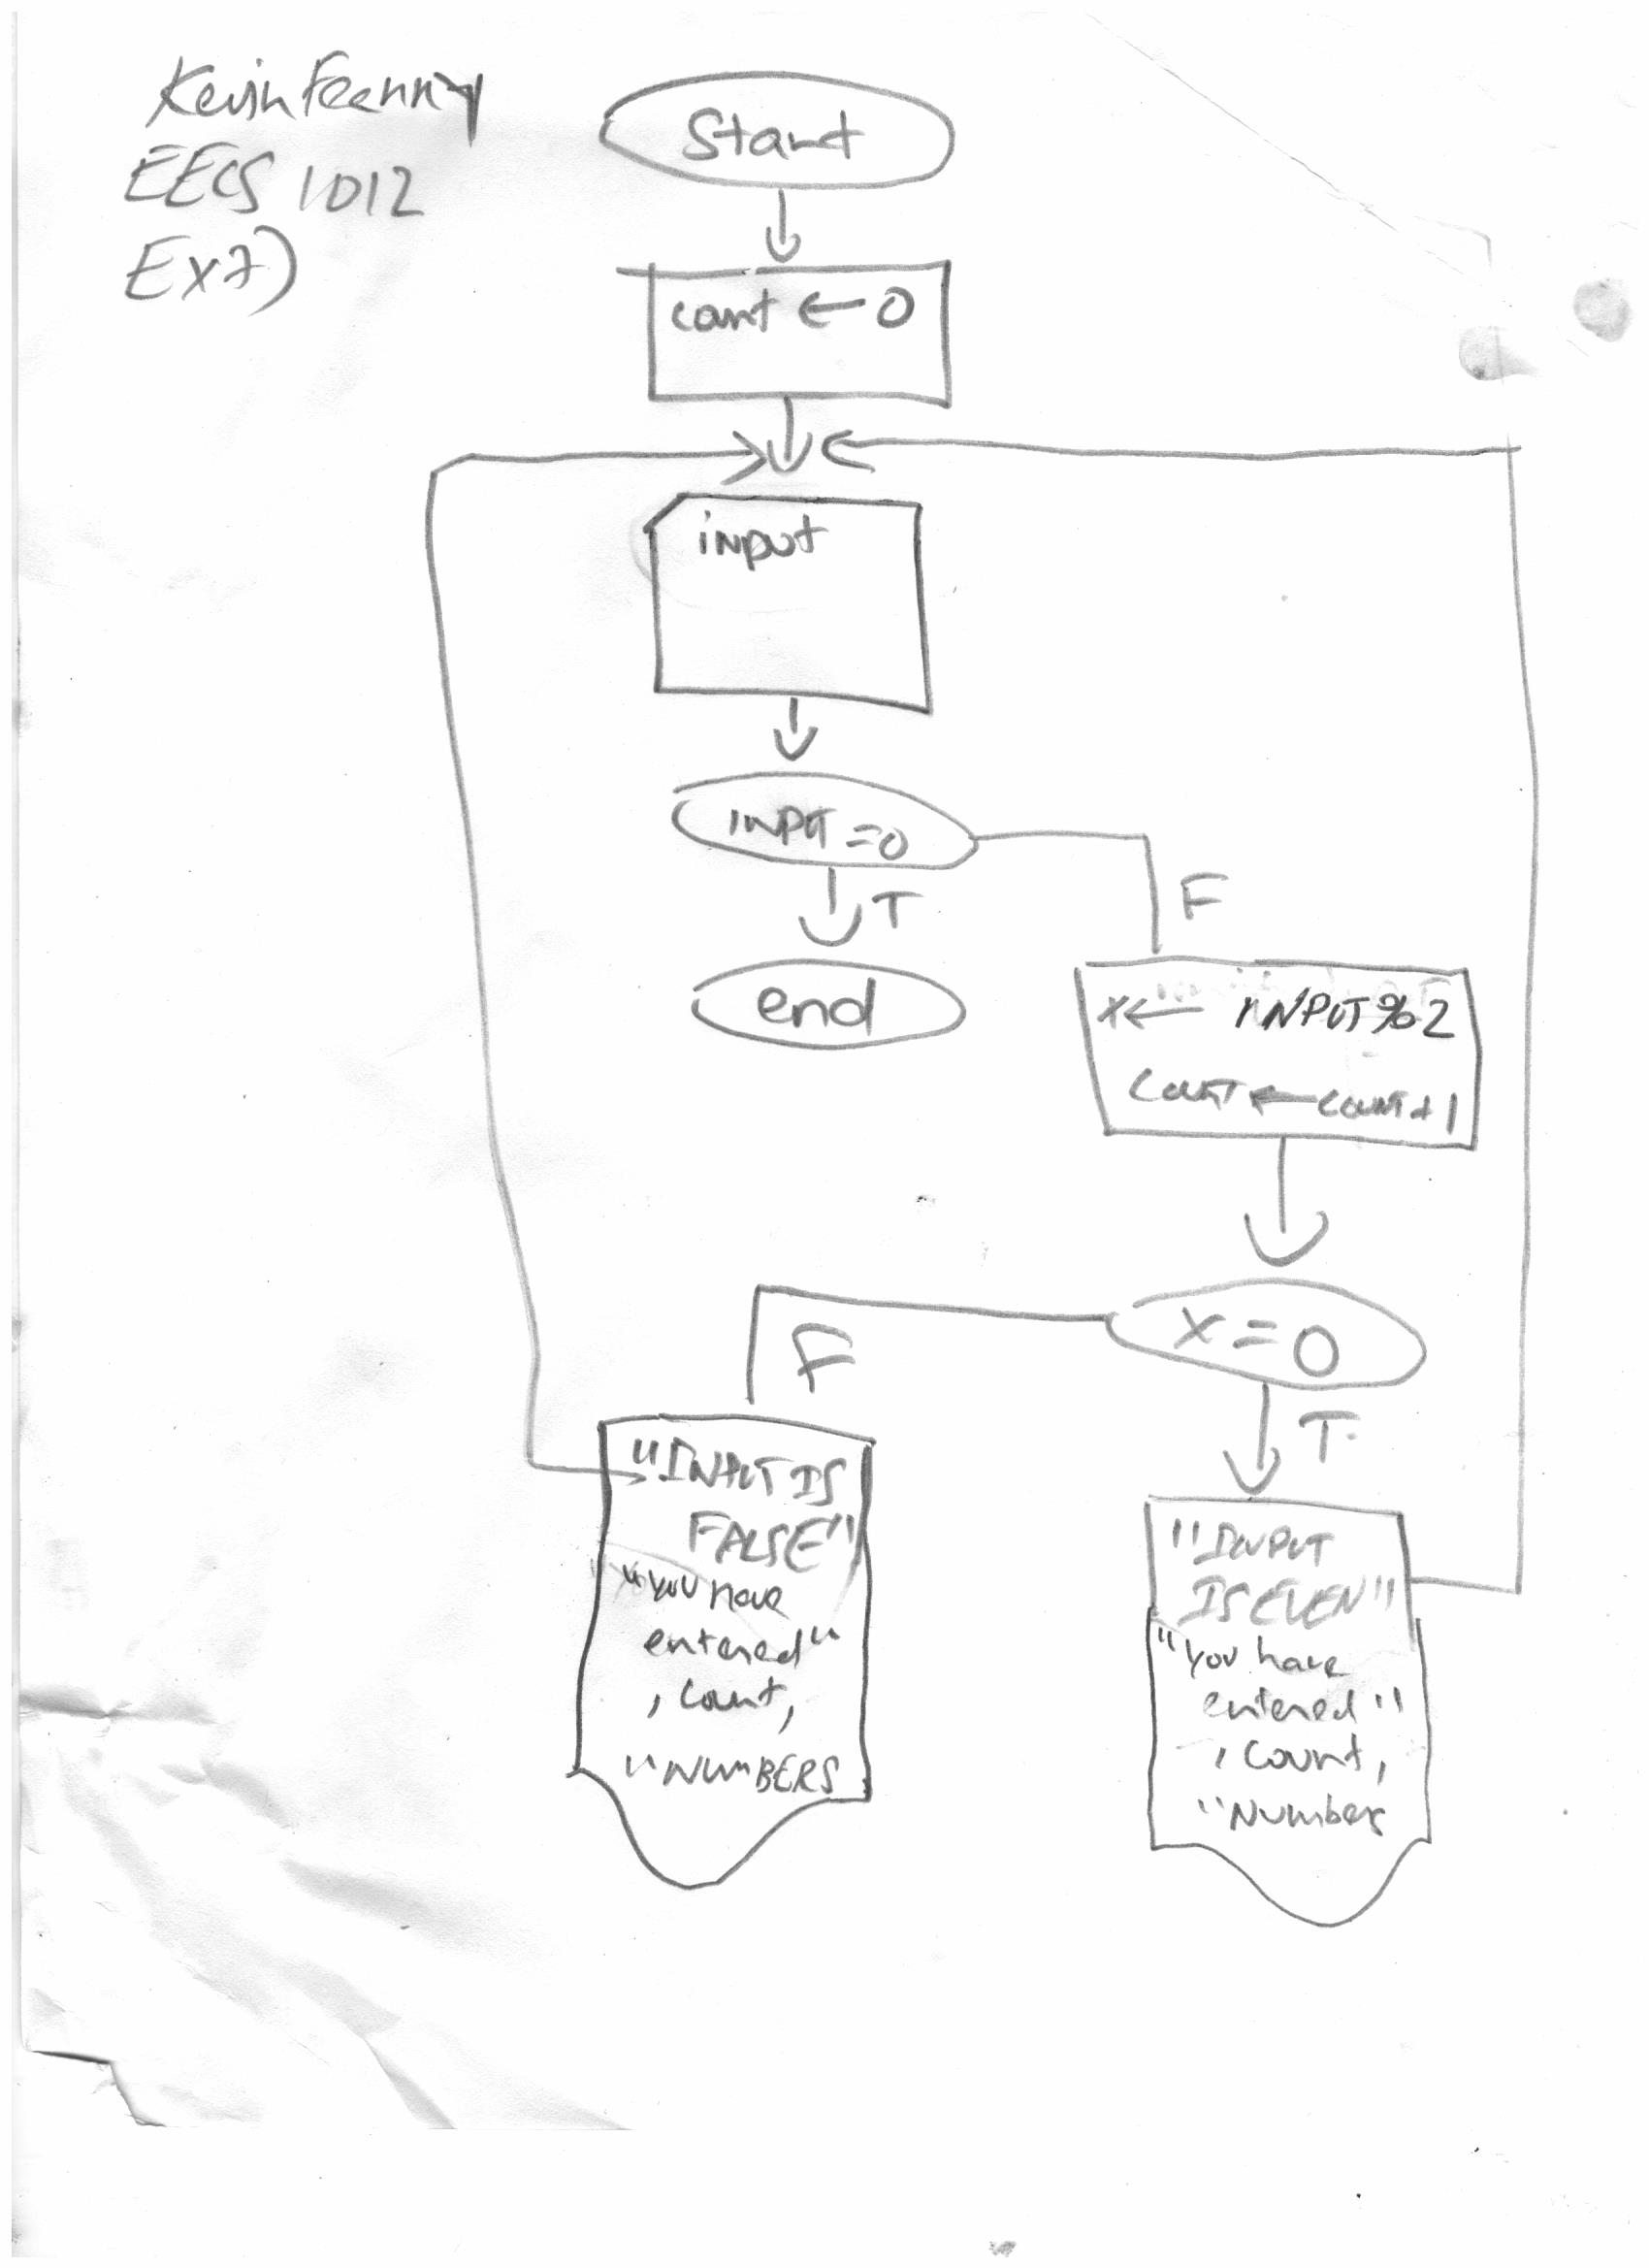 Kevin Feenny
EECS 1012
Ex7)
Start
count ← 0
input
INPUT = 0
F
T
end
x ← INPUT % 2
COUNT ← COUNT + 1
x = 0
F
T
"INPUT IS
FALSE"
"you have
entered"
, count,
"NUMBERS
"INPUT
IS EVEN"
"you have
entered"
, count,
"Number